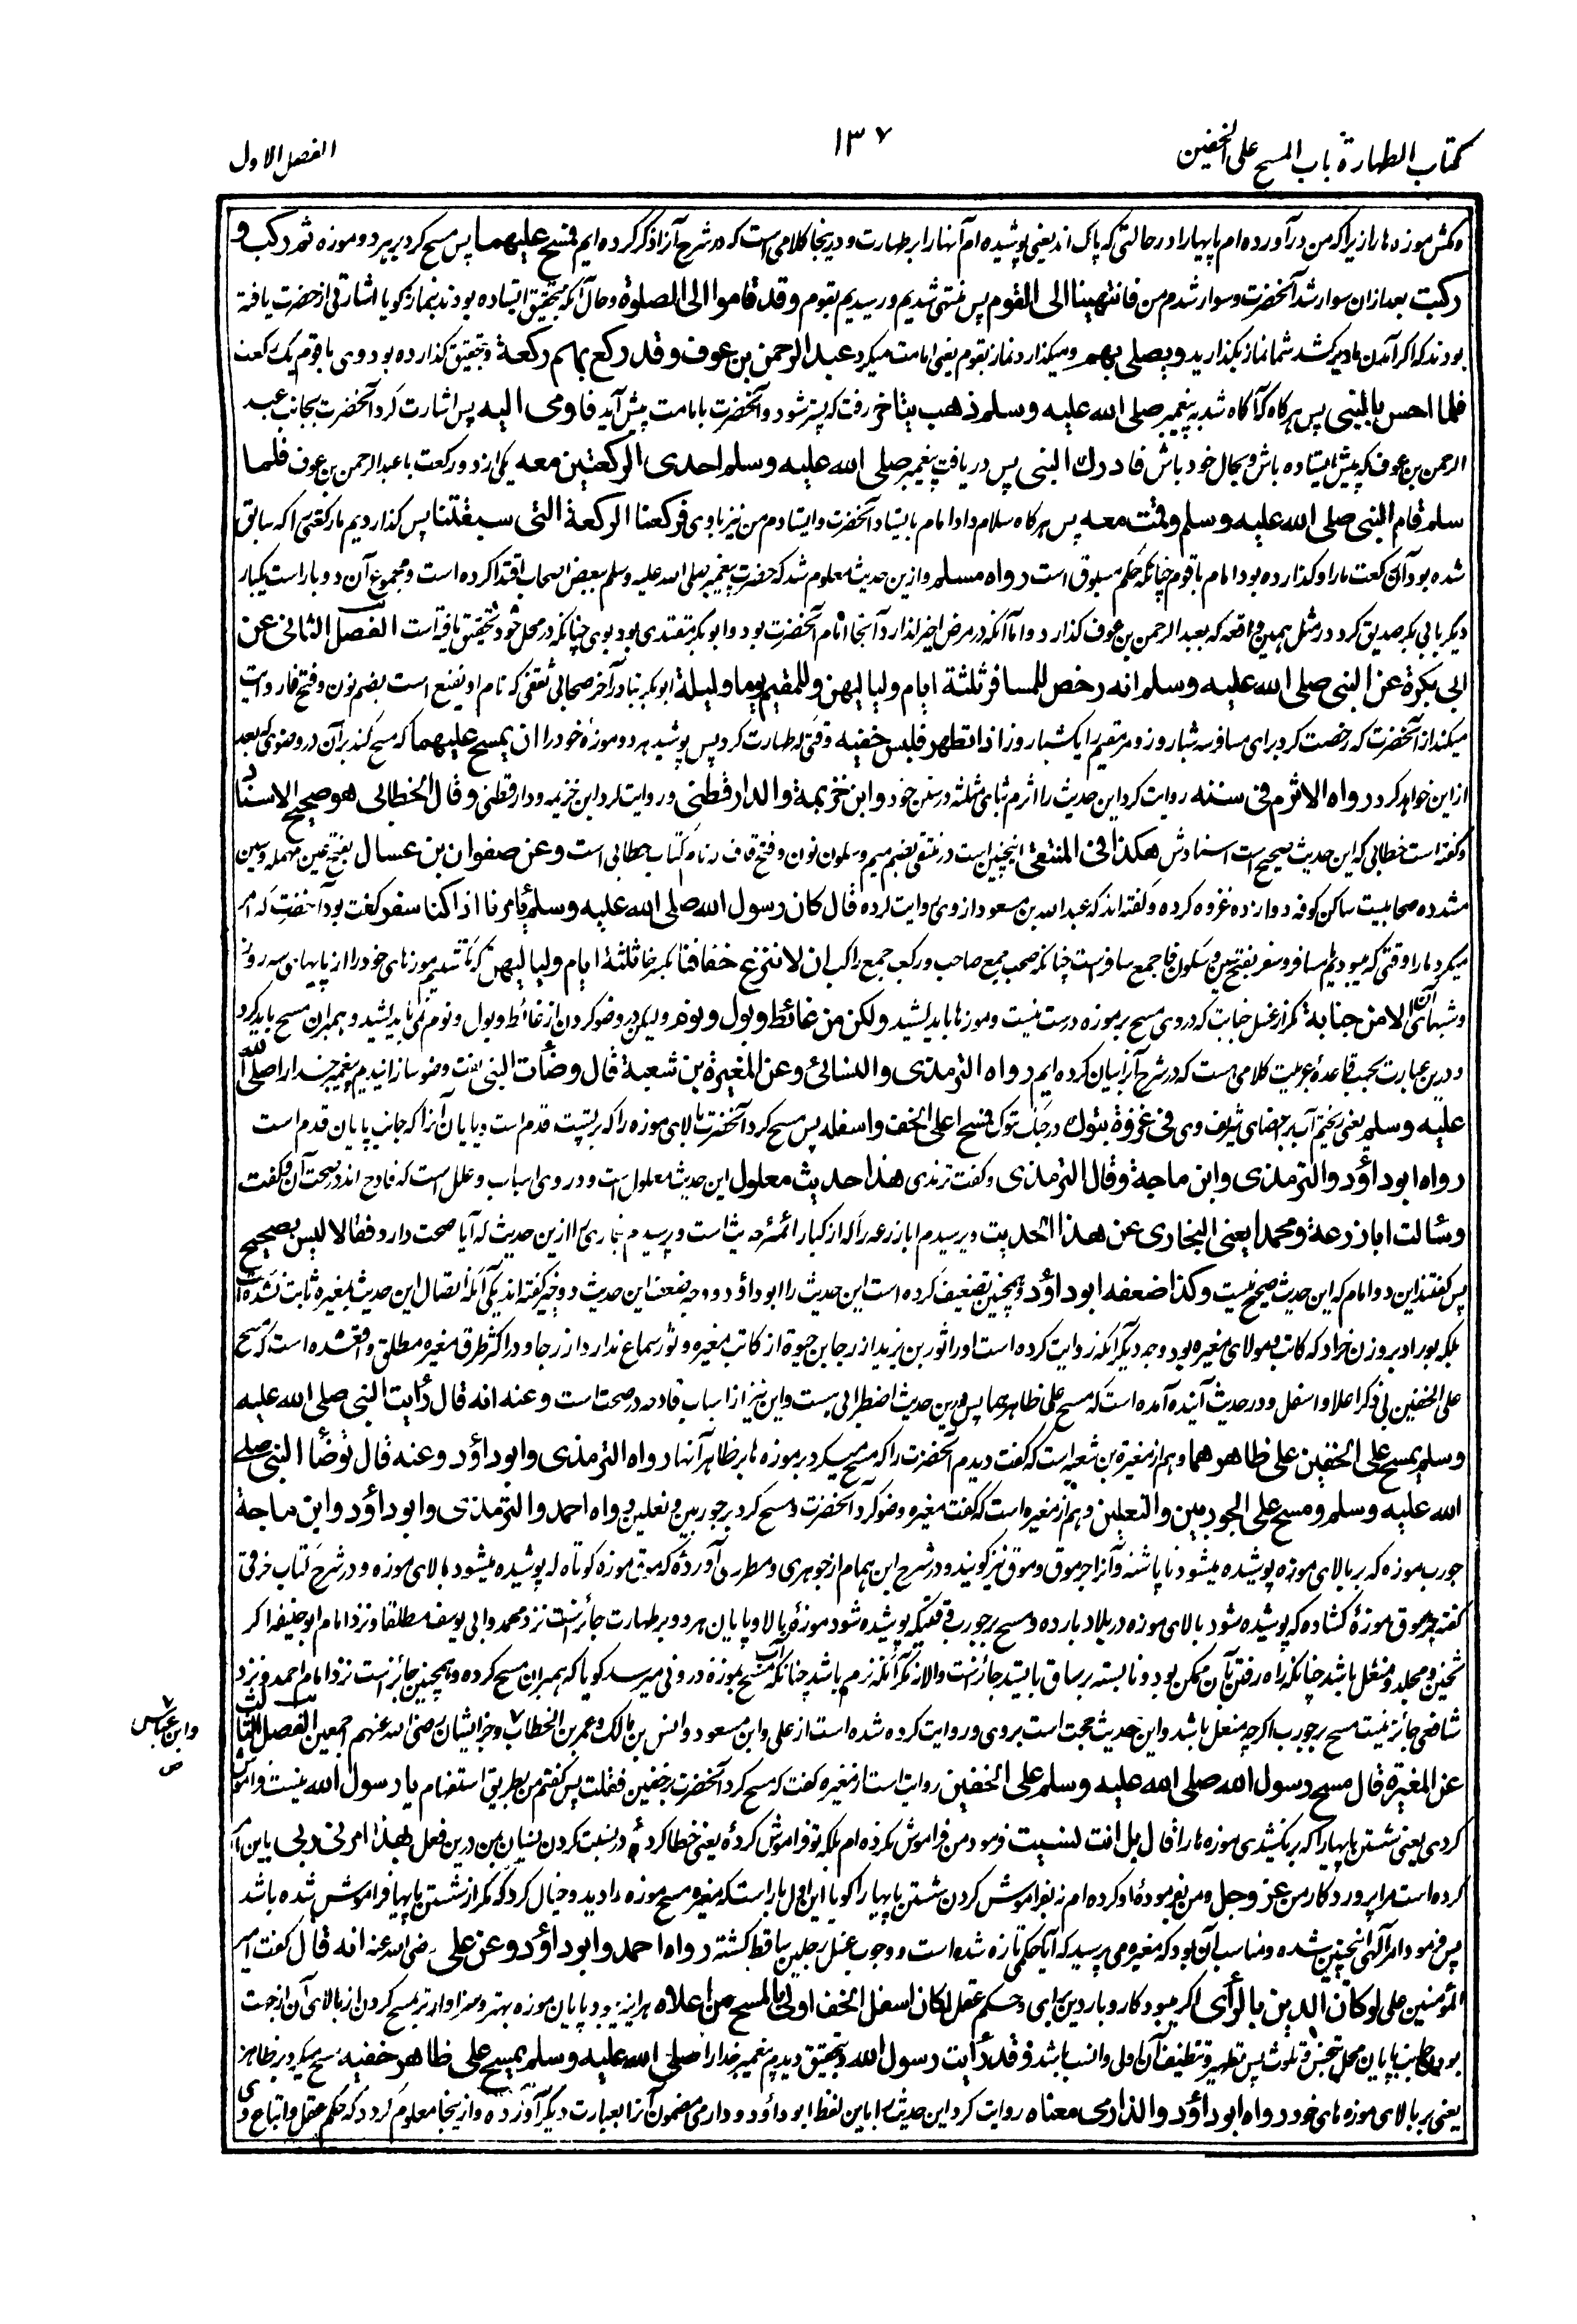 کتاب الطهارة باب المسح علی الخفین
۱۳۷
الفصل الاول
مکش موزه ها را زیرا که من درآورده ام پایها را در حالتی که پاک اند یعنی پوشیده ام آنها را بر طهارت و درینجا کلامی است که در شرح آنرا ذکر کرده ایم فمسح علیهما پس مسح کرد بر هر دو موزه ثم رکب و
رکبت بعد ازان سوار شد آنحضرت و سوار شدم من فانتهینا الی القوم پس منتهی شدیم و رسیدیم بقوم وقد قاموا الی الصلوة و حال آنکه بتحقیق ایستاده بودند بنماز گویا اشارتی از حضرت یافته
بودند که اگر آمدن ما دیر کشد شما نماز بگذارید و یصلی بهم و میگذارد نماز بقوم یعنی امامت میکرد عبد الرحمن بن عوف وقد رکع بهم رکعة و بتحقیق گذارده بود وی با قوم یک رکعت
فلما احس بالنبی پس هرگاه که آگاه شد به پیغمبر صلی الله علیه وسلم ذهب یتاخر رفت که پستر شود و آنحضرت بامامت پیش آید فاومی الیه پس اشارت کرد آنحضرت بجانب عبد
الرحمن بن عوف که پیش ایستاده باش و بحال خود باش فادرك النبی پس دریافت پیغمبر صلی الله علیه وسلم احدی الرکعتین معه یکی از دو رکعت با عبد الرحمن بن عوف فلما
سلم قام النبی صلی الله علیه وسلم وقمت معه پس هرگاه سلام داد امام بایستاد آنحضرت و ایستادم من نیز با وی فرکعنا الرکعة التی سبقتنا پس گذاردیم ما رکعتی را که سابق
شده بود آن رکعت ما را و گذارده بود امام با قوم چنانکه حکم مسبوق است رواه مسلم و ازین حدیث معلوم شد که حضرت پیغمبر صلی الله علیه وسلم ببعض اصحاب اقتدا کرده است و مجموع آن دو بار است یکبار
دیگر با ابی بکر صدیق کرد در مثل همین واقعه که بعبد الرحمن بن عوف گذارد و اما آنکه در مرض اخیر گذارد آنجا امام آنحضرت بود و ابو بکر مقتدی بود بوی چنانکه در محل خود تحقیق یافته است الفصل الثانی عن
ابی بکرة عن النبی صلی الله علیه وسلم انه رخص للمسافر ثلثة ایام ولیالیهن وللمقیم یوما ولیلة ابو بکره بتا در آخر صحابی ثقفی که نام او نفیع است بضم نون و فتح فا روایت
میکند از آنحضرت که رخصت کرد برای مسافر سه شبا روز و مر مقیم را یک شبا روز اذا تطهر فلبس خفیه وقتی که طهارت کرد پس پوشید هر دو موزۀ خود را ان یمسح علیهما که مسح کند بر آن در وضوی که بعد
از این خواهد کرد رواه الاثرم فی سننه روایت کرد این حدیث را اثرم بثای مثلثه در سنن خود وابن خزیمة والدارقطنی و روایت کرد ابن خزیمه و دارقطنی وقال الخطابی هو صحیح الاسناد
و گفته است خطابی که این حدیث صحیح است اسنادش هکذا فی المنتقی اینچنین است در منتقی بضم میم و سکون نون و فتح قاف که نام کتاب خطابی است وعن صفوان بن عسال بفتح عین مهمله و سین
مشدده صحابیست ساکن کوفه دوازده غزوه کرده و گفته اند که عبد الله بن مسعود از وی روایت کرده قال کان رسول الله صلی الله علیه وسلم یأمرنا اذا کنا سفرا گفت بود آنحضرت که امر
میکرد ما را وقتی که میبودیم مسافر و سفر بفتح سین و سکون فا جمع سافر است چنانکه صحب جمع صاحب و رکب جمع راکب ان لا ننزع خفافنا بکسر خا ثلثة ایام ولیالیهن که نکشیم موزهای خود را از پایها سه روز
و شبهای آن الا من جنابة مگر از غسل جنابت که در وی مسح بر موزه درست نیست و موزها باید کشید ولکن من غائط وبول ونوم ولیکن در وضو کردن از غائط و بول و نوم نمی باید کشید و همبران مسح باید کرد
و درین عبارت بحسب قاعدۀ عربیت کلامی هست که در شرح آنرا بیان کرده ایم رواه الترمذی والنسائی وعن المغیرة بن شعبة قال وضأت النبی گفت وضو سازانیدم پیغمبر خدا را صلی الله
علیه وسلم یعنی ریختم آب بر اعضای شریف وی فی غزوة تبوك در جنگ تبوک فمسح اعلی الخف واسفله پس مسح کرد آنحضرت بالای موزه را که بر پشت قدم است و پایان آنرا که جانب پایان قدم است
رواه ابو داؤد والترمذی وابن ماجة وقال الترمذی و گفت ترمذی هذا حدیث معلول این حدیث معلول است و در وی اسباب و علل است که قادح اند در صحت آن و گفت
وسألت ابا زرعة ومحمدا یعنی البخاری عن هذا الحدیث و پرسیدم ابا زرعه را که از کبار ائمۀ حدیث است و پرسیدم بخاری را ازین حدیث که آیا صحت دارد فقالا لیس بصحیح
پس گفتند این دو امام که این حدیث صحیح نیست وکذا ضعفه ابو داؤد و همچنین تضعیف کرده است این حدیث را ابو داؤد و وجه ضعف این حدیث دو وجه گفته اند یکی آنکه اتصال این حدیث بمغیره ثابت نشده است
بلکه بوراد بر وزن خراد که کاتب و مولای مغیره بود وجه دیگر آنکه روایت کرده است او را ثور بن یزید از رجا بن حیوة از کاتب مغیره و ثور سماع ندارد از رجا و در اکثر طرق مغیره مطلق واقع شده است که مسح
علی الخفین بی ذکر اعلا و اسفل و در حدیث آینده آمده است که مسح علی ظاهرهما پس درین حدیث اضطرابی هست و این نیز از اسباب قادحه در صحت است وعنه انه قال رأیت النبی صلی الله علیه
وسلم یمسح علی الخفین علی ظاهرهما و هم از مغیرة بن شعبه است که گفت دیدم آنحضرت را که مسح میکرد بر موزه ها بر ظاهر آنها رواه الترمذی وابو داؤد وعنه قال توضأ النبی صلی
الله علیه وسلم ومسح علی الجوربین والنعلین و هم از مغیره است که گفت مغیره وضو کرد آنحضرت و مسح کرد بر جوربین و نعلین رواه احمد والترمذی وابو داؤد وابن ماجة
جورب موزه که بر بالای موزه پوشیده میشود تا پاشنه و آنرا جرموق و موق نیز گویند و در شرح ابن همام از جوهری و مطرزی آورده که موق موزه کوتاه که پوشیده میشود بالای موزه و در شرح کتاب خرقی
گفته جرموق موزۀ کشاده که پوشیده شود بالای موزه در بلاد بارده و مسح بر جورب وقتیکه پوشیده شود موزۀ بالا و پایان هر دو بر طهارت جائز است نزد محمد و ابی یوسف مطلقا و نزد امام ابو حنیفه اگر
ثخین و مجلد و منعل باشد چنانکه راه رفتن بآن ممکن بود و نابسته بر ساق بایستد جائز است والا نه مگر آنکه نرم باشد چنانکه آب مسح بموزۀ درونی میرسد گویا که همبران مسح کرده و همچنین جائز است نزد امام احمد و نزد
شافعی جائز نیست مسح بر جورب اگرچه منعل باشد و این حدیث حجت است بروی و روایت کرده شده است از علی و ابن مسعود و انس بن مالک و عمر بن الخطاب و جز ایشان رضی الله عنهم اجمعین الفصل الثالث
وابن عباس
ص
عن المغیرة قال مسح رسول الله صلی الله علیه وسلم علی الخفین روایت است از مغیره گفت که مسح کرد آنحضرت بر خفین فقلت پس گفتم من بطریق استفهام یا رسول الله نسیت فراموش
کردی یعنی شستن پایها را که بر نکشیدی موزه ها را قال بل انت نسیت فرمود من فراموش نکرده ام بلکه تو فراموش کردۀ یعنی خطا کردۀ در نسبت کردن نسیان بمن درین فعل بهذا امرنی ربی باین امر
کرده است مرا پروردگار من عز وجل و من بفرمودۀ او کرده ام نه بفراموش کردن شستن پایها را گویا این اول بار است که مغیره مسح موزه را دید و خیال کرد که مگر از شستن پایها فراموش شده باشد
پس فرمود امر الهی اینچنین شده و مناسب آن بود که مغیره می پرسید که آیا حکمی تازه شده است و وجوب غسل رجلین ساقط گشته رواه احمد وابو داؤد وعن علی رضی الله عنه انه قال گفت امیر
المؤمنین علی لو کان الدین بالرأی اگر میبود کار و بار دین برای و حکم عقل لکان اسفل الخف اولی بالمسح من اعلاه هرآینه میبود پایان موزه بهتر و سزاوارتر بمسح کردن از بالای آن از جهت
بودن جانب پایان محل تنجس و تلوث پس تطهیر و تنظیف آن اولی و انسب باشد وقد رأیت رسول الله و بتحقیق دیدم پیغمبر خدا را صلی الله علیه وسلم یمسح علی ظاهر خفیه مسح میکرد بر ظاهر
یعنی بر بالای موزه های خود رواه ابو داؤد والدارمی معناه روایت کرد این حدیث را باین لفظ ابو داؤد و دارمی مضمون آنرا بعبارت دیگر آورده و از ینجا معلوم گردد که حکم عقل و اتباع وی